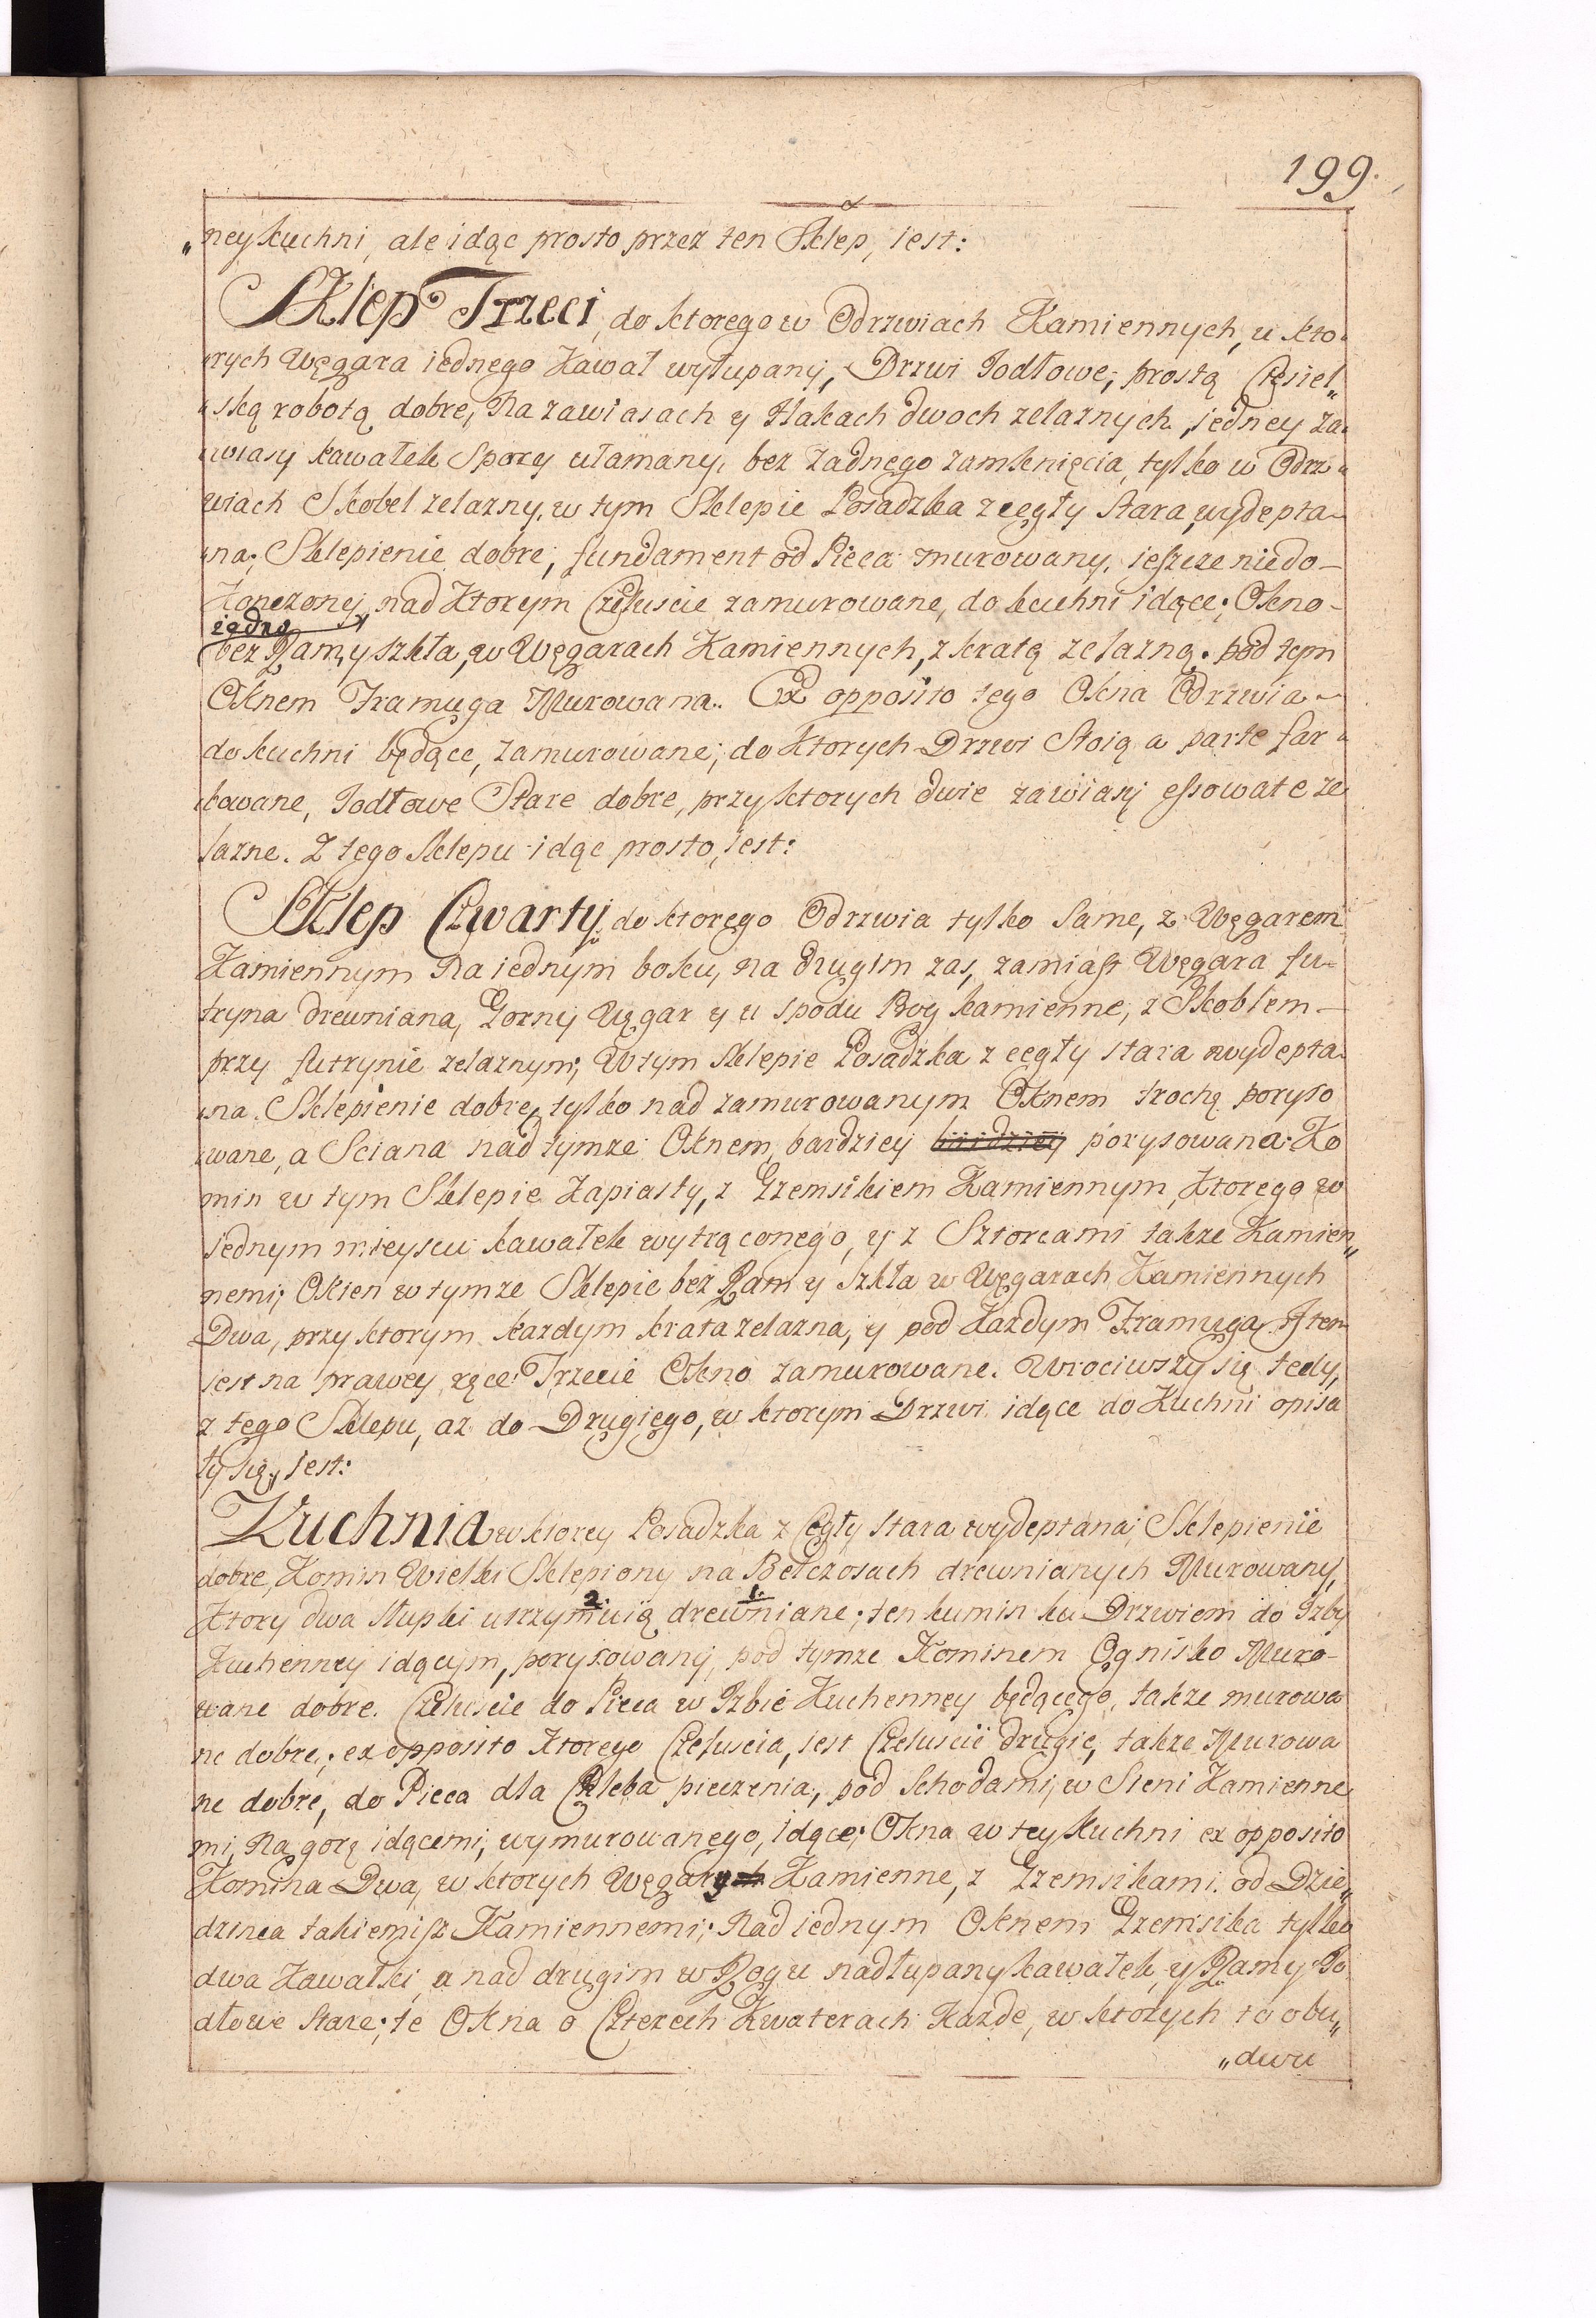 199.
„ney kuchni, ale idąc prosto przez ten Sklep, iest:
Sklep Trzeci, do ktorego w Odrzwiach Kamiennych, u kto-
rych Węgara iednego Kawał wyłupany, Drzwi Jodłowe, prostą Ciesiel„
„ską robotą dobre, Na zawiasach y Hakach dwoch zelaznych, iedney za-
„wiasy kawałek Spory ułamany, bez Zadnego zamknięcia, tylko w Odrz-
wiach Skobel zelazny, w tym Sklepie Posadzka z cegły Stara, wydepta-
„na; Sklepienie dobre, fundament od Pieca murowany, ieszcze niedo-
Konczony, nad Ktorym Czeluscie zamurowane, do kuchni idące; Okno-
iedno
bez Ram, y szkła, w Węgarach Kamiennych, z kratą zelazną. pod tym
Oknem Framuga Murowana. Ex opposito tego Okna Odrzwia-
do kuchni będące, zamurowane; do Ktorych Drzwi Stoią a parte far-
bowane, Jodłowe Stare dobre, przy ktorych dwie zawiasy essowate ze
lazne. Z tego Sklepu idąc prosto, iest:
Sklep Czwarty, do ktorego Odrzwia tylko Same, z Węgarem
Kamiennym Na iednym boku, na drugim zas, zamiast Węgara fu-
tryna drewniana, Gorny Węgar y u spodu Prog kamienne, z Skoblem-
przy futrynie zelaznym; W tym Sklepie Posadzka z cegły stara wydepta-
„na. Sklepienie dobre, tylko nad zamurowanym Oknem trochę poryso
wane, a Sciana nad tymze Oknem, bardziey porysowana. Ko
min w tym Sklepie Kapiasty, z Gzemsikiem Kamiennym, Ktorego w
iednym mieyscu kawałek wytrąconego, y z Sztorcami takze Kamien„
nemi; Okien w tymze Sklepie bez Ram y Szkła w Węgarach Kamiennych
Dwa, przy ktorym kazdym krata zelazna, y pod Kazdym Framuga. Item
iest na prawey ręce Trzecie Okno zamurowane. Wrociwszy się tedy,
z tego Sklepu, az do Drugiego, w ktorym Drzwi idące do Kuchni opisa
ły się, iest:
Kuchnia w ktorey Posadzka z Cegły Stara wydeptana; Sklepienie
dobre, Komin Wielki Sklepiony na Belczosach drewnianych Murowany,
2. 1.
Ktory dwa Słupki utrzymuią drewniane; ten kumin ku Drzwiem do Izby
Kuchenney idącym, porysowany, pod tymze Kominem Ognisko Muro-
wane dobre. Czeluscie do Pieca w Izbie Kuchenney będącego, takze murowa
ne dobre; ex opposito Ktorego Czeluscia, iest Czeluscie drugie, takze Murowa
ne dobre, do Pieca dla Chleba pieczenia, pod Schodami, w Sieni Kamienne
mi, Na gorę idącemi, wymurowanego, idące; Okna w tey Kuchni ex opposito
Komina Dwa, w ktorych Węgary Kamienne, z Gzemsikami od Dzie„
dzinca takiemisz Kamiennemi; Nad iednym Oknem Gzemsika tylko
dwa Kawałki, a nad drugim w Rogu nadłupany kawałek, y Ramy Jo
dłowe Stare; te Okna o Czterech Kwaterach Kazde, w ktorych to obu„
„dwu